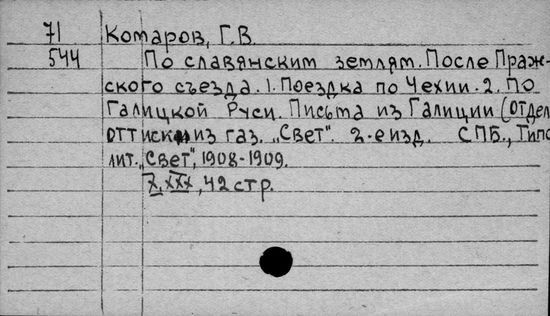 71 Комаров, Г.В.
544 По славянским землям. После Праж-
ского съезда. 1. Поездка по Чехии. 2. По
Галицкой Руси. Письма из Галиции (отдел.
оттиски из газ. „Свет". 2-е изд. СПБ., Типо
лит. „Свет", 1908-1909.
X, XXX, 42 стр.